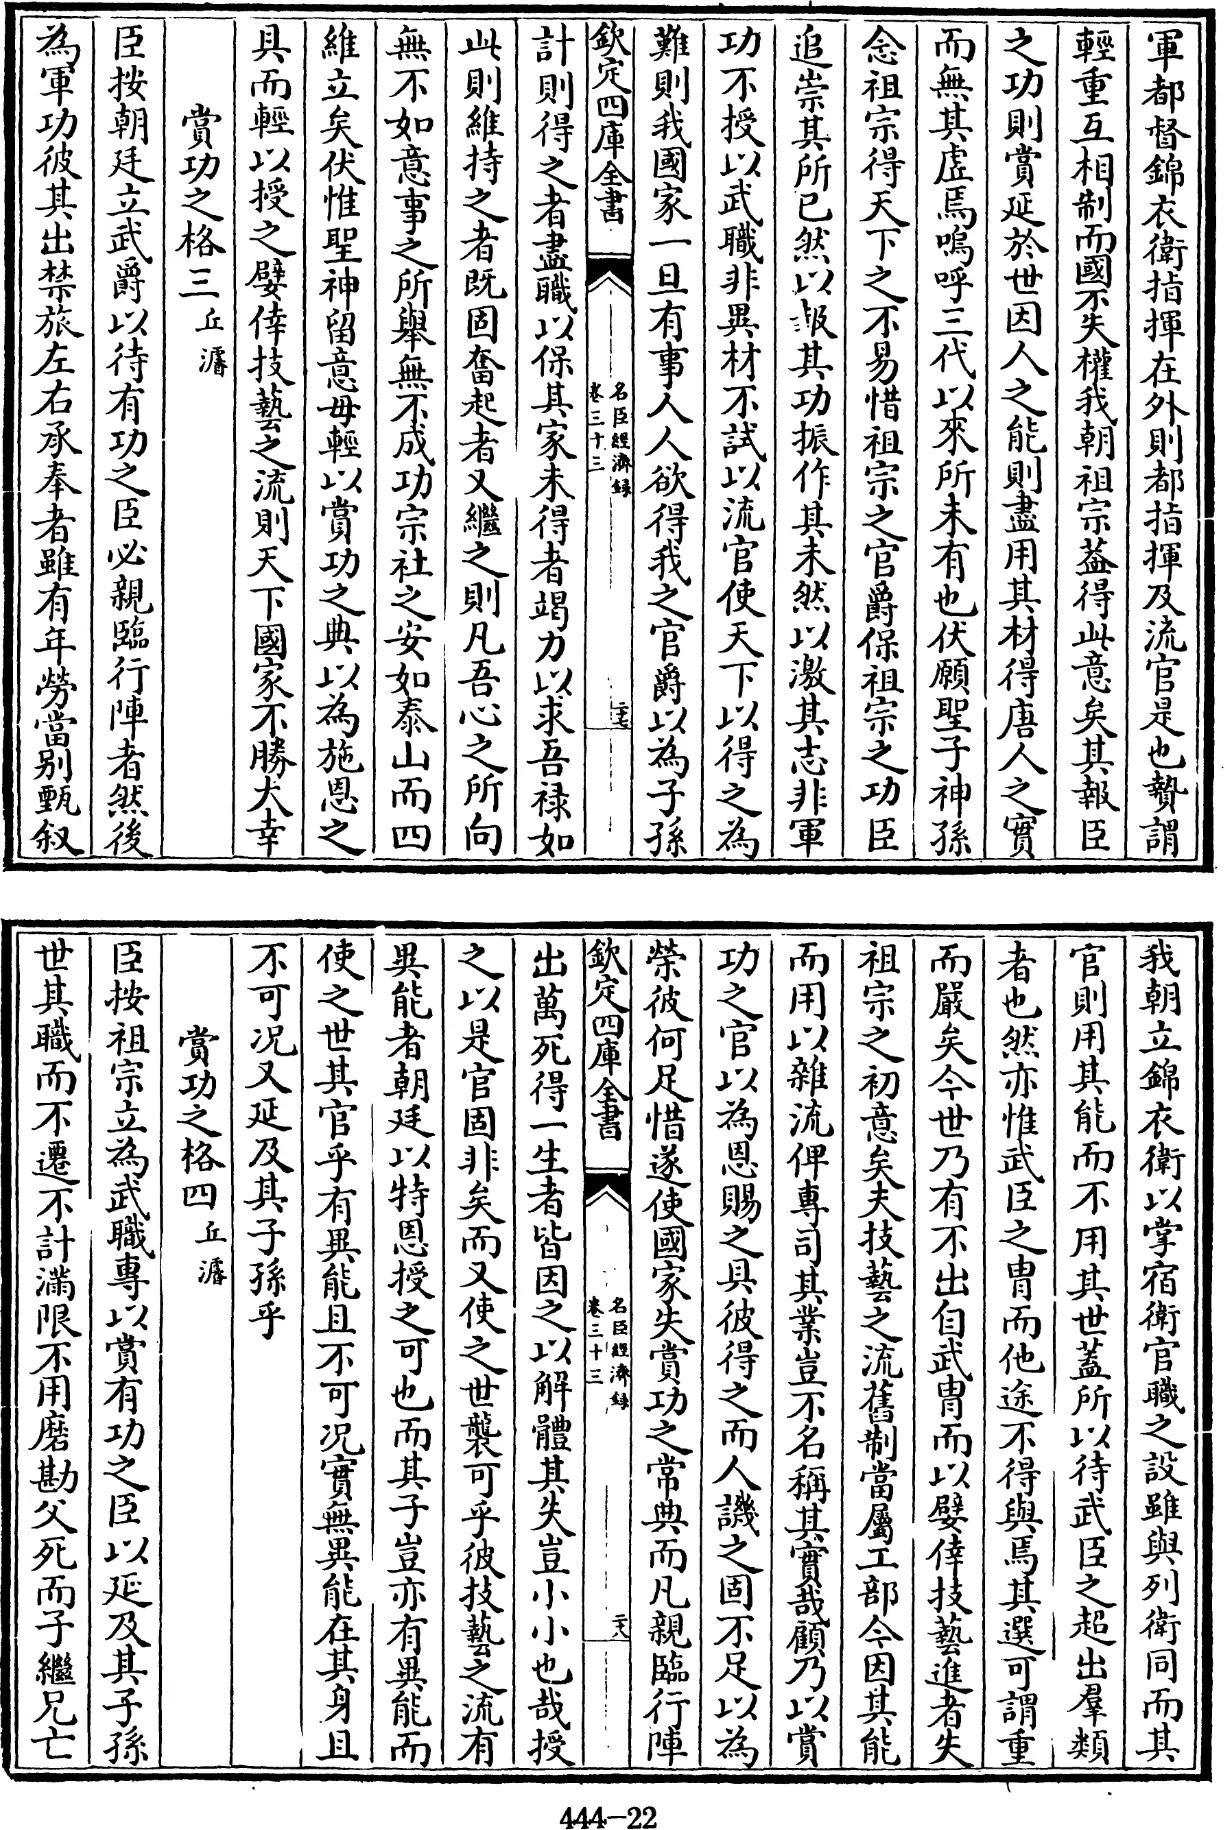 軍都督錦衣衛指揮在外則都指揮及流官是也贄謂
輕重互相制而國不失權我朝祖宗葢得此意矣其報臣
之功則賞延於世因人之能則盡用其材得唐人之實
而無其虛焉嗚呼三代以來所未有也伏願聖子神孫
念祖宗得天下之不易惜祖宗之官爵保祖宗之功臣
追崇其所已然以報其功振作其未然以激其志非軍
功不授以武職非異材不試以流官使天下以得之為
難則我國家一旦有事人人欲得我之官爵以為子孫
欽定四庫全書
名臣經濟錄
卷三十三
二十七
計則得之者盡職以保其家未得者竭力以求吾祿如
此則維持之者既固奮起者又繼之則凡吾心之所向
無不如意事之所舉無不成功宗社之安如泰山而四
維立矣伏惟聖神留意毋輕以賞功之典以為施恩之
具而輕以授之嬖倖技藝之流則天下國家不勝大幸
賞功之格三 丘濬
臣按朝廷立武爵以待有功之臣必親臨行陣者然後
為軍功彼其出禁旅左右承奉者雖有年勞當别甄叙
我朝立錦衣衛以掌宿衛官職之設雖與列衛同而其
官則用其能而不用其世蓋所以待武臣之超出羣類
者也然亦惟武臣之胄而他途不得與焉其選可謂重
而嚴矣今世乃有不出自武胄而以嬖倖技藝進者失
祖宗之初意矣夫技藝之流舊制當屬工部今因其能
而用以雜流俾專司其業豈不名稱其實哉顧乃以賞
功之官以為恩賜之具彼得之而人譏之固不足以為
榮彼何足惜遂使國家失賞功之常典而凡親臨行陣
欽定四庫全書
名臣經濟錄
卷三十三
二十八
出萬死得一生者皆因之以解體其失豈小小也哉授
之以是官固非矣而又使之世襲可乎彼技藝之流有
異能者朝廷以特恩授之可也而其子豈亦有異能而
使之世其官乎有異能且不可况實無異能在其身且
不可况又延及其子孫乎
賞功之格四 丘濬
臣按祖宗立為武職專以賞有功之臣以延及其子孫
世其職而不遷不計滿限不用磨勘父死而子繼兄亡
444-22